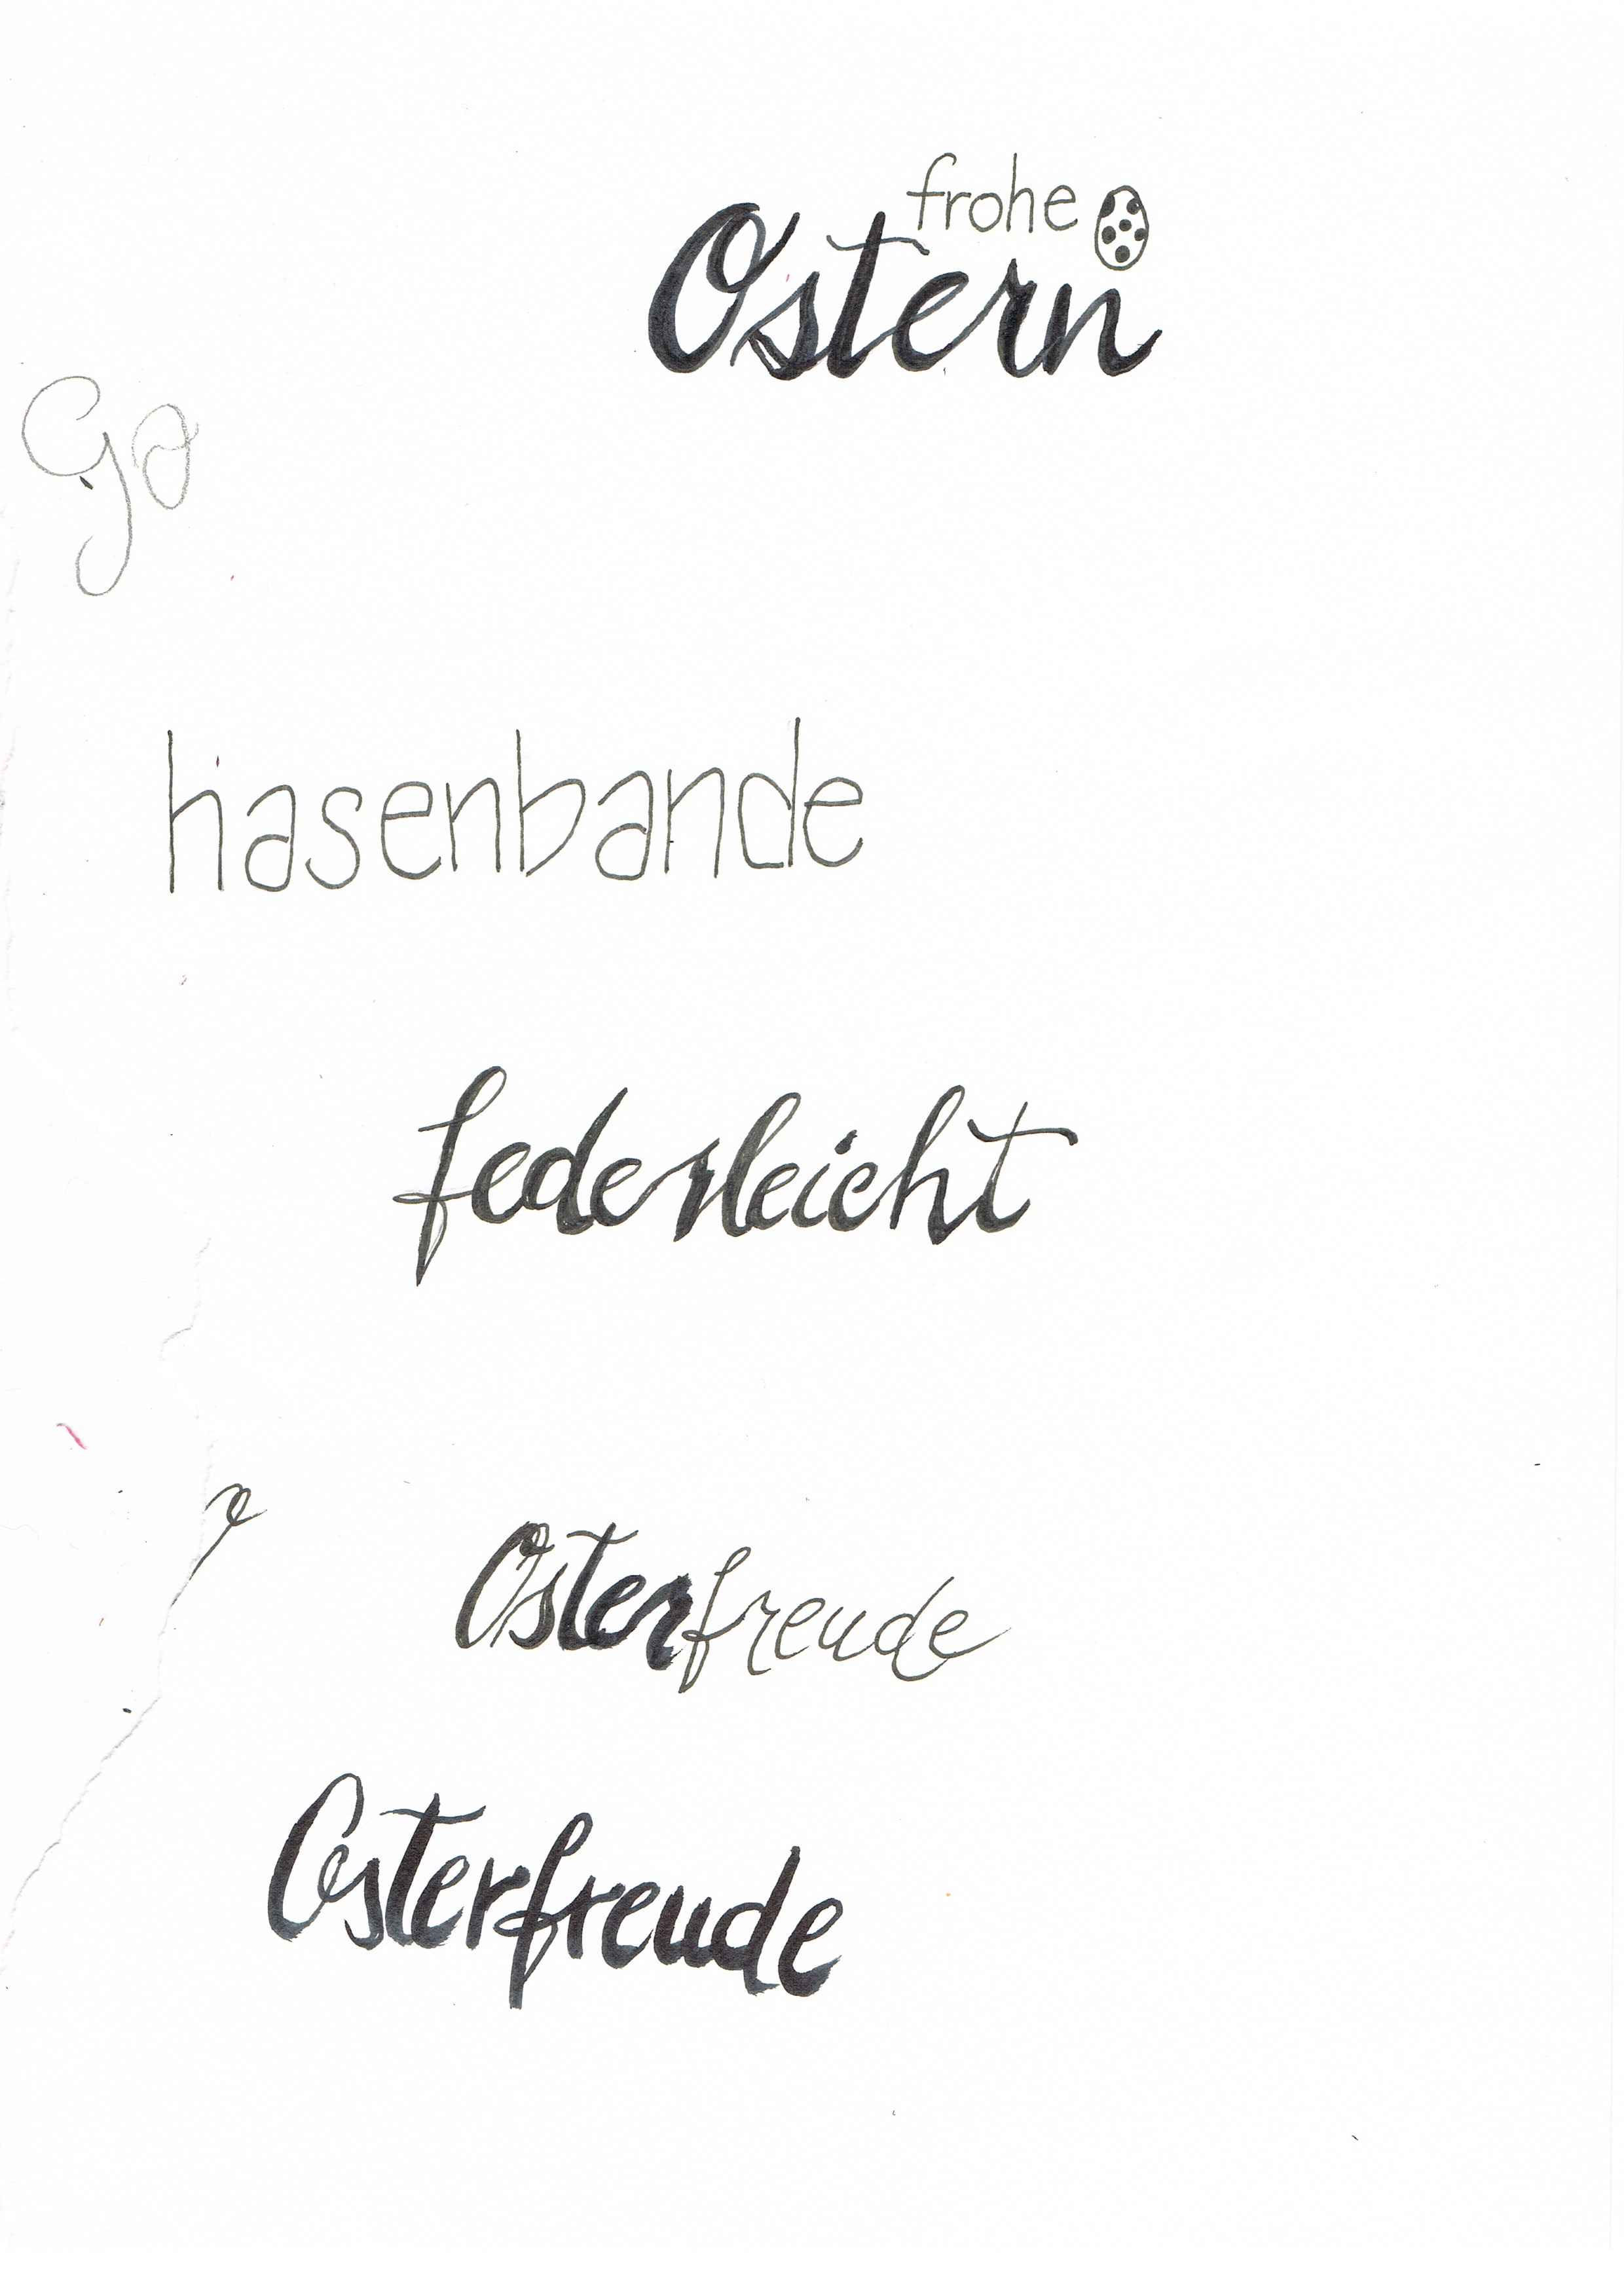 frohe
Ostern
hasenbande
federleicht
Osterfreude
Osterfreude